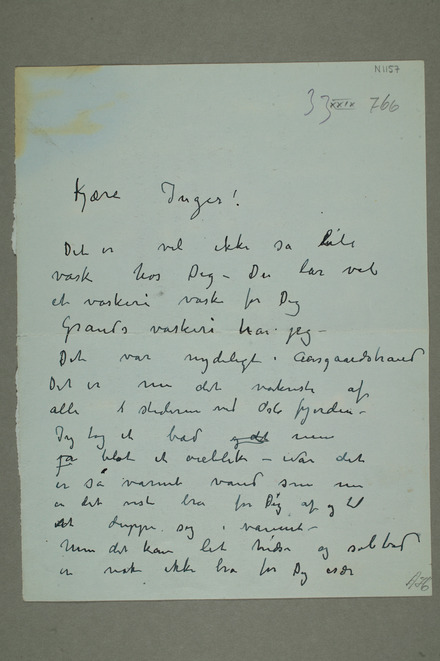 N 1157
33 XXIX 766
Kjære Inger!
Det er vel ikke så lite
vask hos Dig – Du har vel
et vaskeri vaske for Dig
Grands vaskeri har jeg –
Det var nydeligt i Aasgaardstrand
Det er nu det vakreste af
alle stederne ved Oslo fjorden –
Jeg tog et bad og det men
på blot et øieblikk – når det
er så varmt vand som nu
er det visst bra for Dig af og til
at duppe sig i vannet –
Men det kan let hidse og saltbad
er nok ikke bra for Dig især